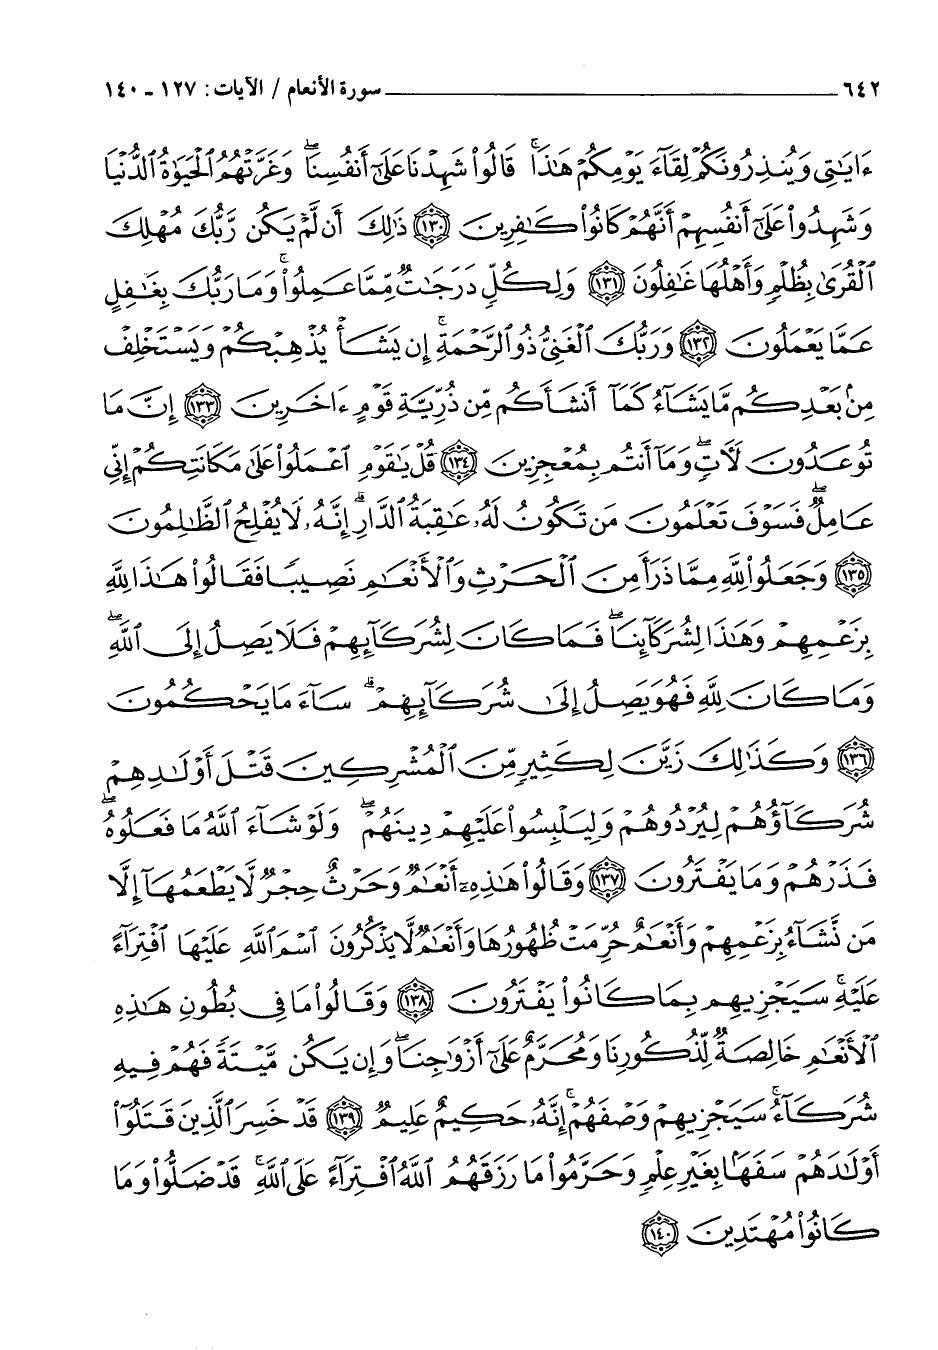 ٦٤٢ سورة الأنعام / الآيات: ١٢٧ - ١٤٠
ءَايَٰتِى وَيُنذِرُونَكُمْ لِقَآءَ يَوْمِكُمْ هَٰذَا ۚ قَالُوا۟ شَهِدْنَا عَلَىٰٓ أَنفُسِنَا ۖ وَغَرَّتْهُمُ ٱلْحَيَوٰةُ ٱلدُّنْيَا
وَشَهِدُوا۟ عَلَىٰٓ أَنفُسِهِمْ أَنَّهُمْ كَانُوا۟ كَٰفِرِينَ ١٣٠ ذَٰلِكَ أَن لَّمْ يَكُن رَّبُّكَ مُهْلِكَ
ٱلْقُرَىٰ بِظُلْمٍ وَأَهْلُهَا غَٰفِلُونَ ١٣١ وَلِكُلٍّ دَرَجَٰتٌ مِّمَّا عَمِلُوا۟ ۚ وَمَا رَبُّكَ بِغَٰفِلٍ
عَمَّا يَعْمَلُونَ ١٣٢ وَرَبُّكَ ٱلْغَنِىُّ ذُو ٱلرَّحْمَةِ ۚ إِن يَشَأْ يُذْهِبْكُمْ وَيَسْتَخْلِفْ
مِنۢ بَعْدِكُم مَّا يَشَآءُ كَمَآ أَنشَأَكُم مِّن ذُرِّيَّةِ قَوْمٍ ءَاخَرِينَ ١٣٣ إِنَّ مَا
تُوعَدُونَ لَءَاتٍ ۖ وَمَآ أَنتُم بِمُعْجِزِينَ ١٣٤ قُلْ يَٰقَوْمِ ٱعْمَلُوا۟ عَلَىٰ مَكَانَتِكُمْ إِنِّى
عَامِلٌ ۖ فَسَوْفَ تَعْلَمُونَ مَن تَكُونُ لَهُۥ عَٰقِبَةُ ٱلدَّارِ ۗ إِنَّهُۥ لَا يُفْلِحُ ٱلظَّٰلِمُونَ
١٣٥ وَجَعَلُوا۟ لِلَّهِ مِمَّا ذَرَأَ مِنَ ٱلْحَرْثِ وَٱلْأَنْعَٰمِ نَصِيبًا فَقَالُوا۟ هَٰذَا لِلَّهِ
بِزَعْمِهِمْ وَهَٰذَا لِشُرَكَآئِنَا ۖ فَمَا كَانَ لِشُرَكَآئِهِمْ فَلَا يَصِلُ إِلَى ٱللَّهِ ۖ
وَمَا كَانَ لِلَّهِ فَهُوَ يَصِلُ إِلَىٰ شُرَكَآئِهِمْ ۗ سَآءَ مَا يَحْكُمُونَ
١٣٦ وَكَذَٰلِكَ زَيَّنَ لِكَثِيرٍ مِّنَ ٱلْمُشْرِكِينَ قَتْلَ أَوْلَٰدِهِمْ
شُرَكَآؤُهُمْ لِيُرْدُوهُمْ وَلِيَلْبِسُوا۟ عَلَيْهِمْ دِينَهُمْ ۖ وَلَوْ شَآءَ ٱللَّهُ مَا فَعَلُوهُ ۖ
فَذَرْهُمْ وَمَا يَفْتَرُونَ ١٣٧ وَقَالُوا۟ هَٰذِهِۦٓ أَنْعَٰمٌ وَحَرْثٌ حِجْرٌ لَّا يَطْعَمُهَآ إِلَّا
مَن نَّشَآءُ بِزَعْمِهِمْ وَأَنْعَٰمٌ حُرِّمَتْ ظُهُورُهَا وَأَنْعَٰمٌ لَّا يَذْكُرُونَ ٱسْمَ ٱللَّهِ عَلَيْهَا ٱفْتِرَآءً
عَلَيْهِ ۚ سَيَجْزِيهِم بِمَا كَانُوا۟ يَفْتَرُونَ ١٣٨ وَقَالُوا۟ مَا فِى بُطُونِ هَٰذِهِ
ٱلْأَنْعَٰمِ خَالِصَةٌ لِّذُكُورِنَا وَمُحَرَّمٌ عَلَىٰٓ أَزْوَٰجِنَا ۖ وَإِن يَكُن مَّيْتَةً فَهُمْ فِيهِ
شُرَكَآءُ ۚ سَيَجْزِيهِمْ وَصْفَهُمْ ۚ إِنَّهُۥ حَكِيمٌ عَلِيمٌ ١٣٩ قَدْ خَسِرَ ٱلَّذِينَ قَتَلُوٓا۟
أَوْلَٰدَهُمْ سَفَهًۢا بِغَيْرِ عِلْمٍ وَحَرَّمُوا۟ مَا رَزَقَهُمُ ٱللَّهُ ٱفْتِرَآءً عَلَى ٱللَّهِ ۚ قَدْ ضَلُّوا۟ وَمَا
كَانُوا۟ مُهْتَدِينَ ١٤٠